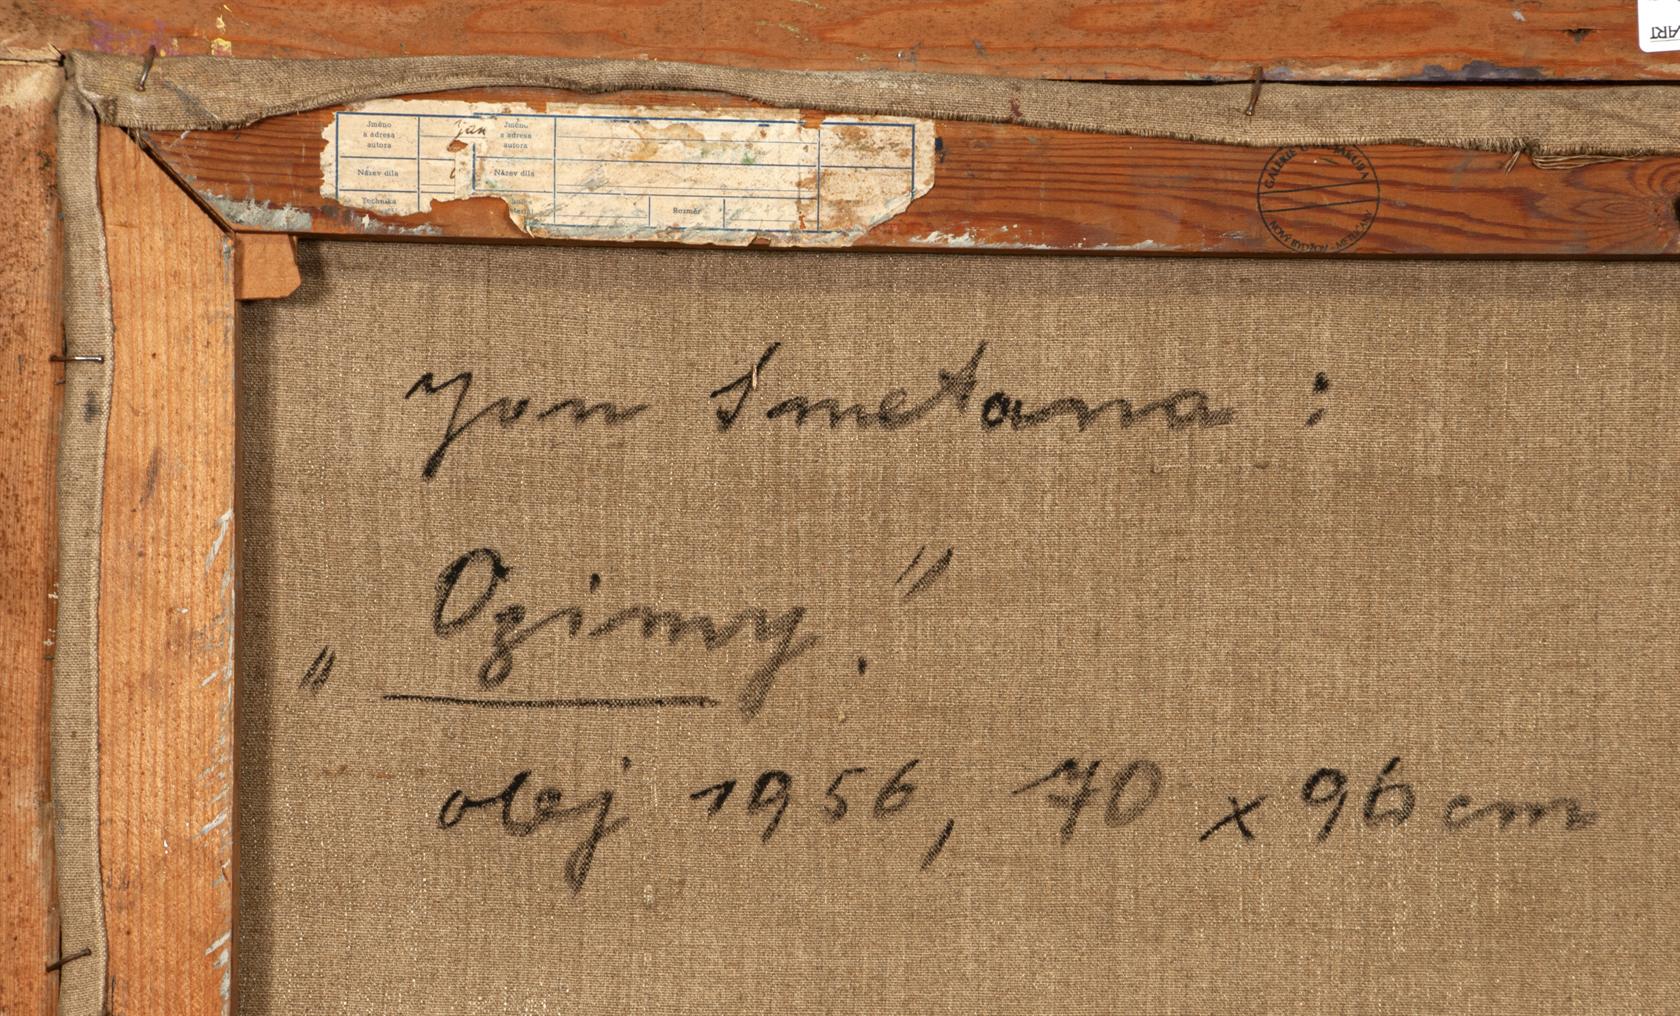 ART
Jméno
a adresa
autora
Jan
Jméno
a adresa
autora
Název díla
Název díla
Technika
Rozměr
GALERIE
NOVÝ BYDŽOV - METLIČAN
Jan Smetana :
„Ozimy."
olej 1956, 70 x 96 cm